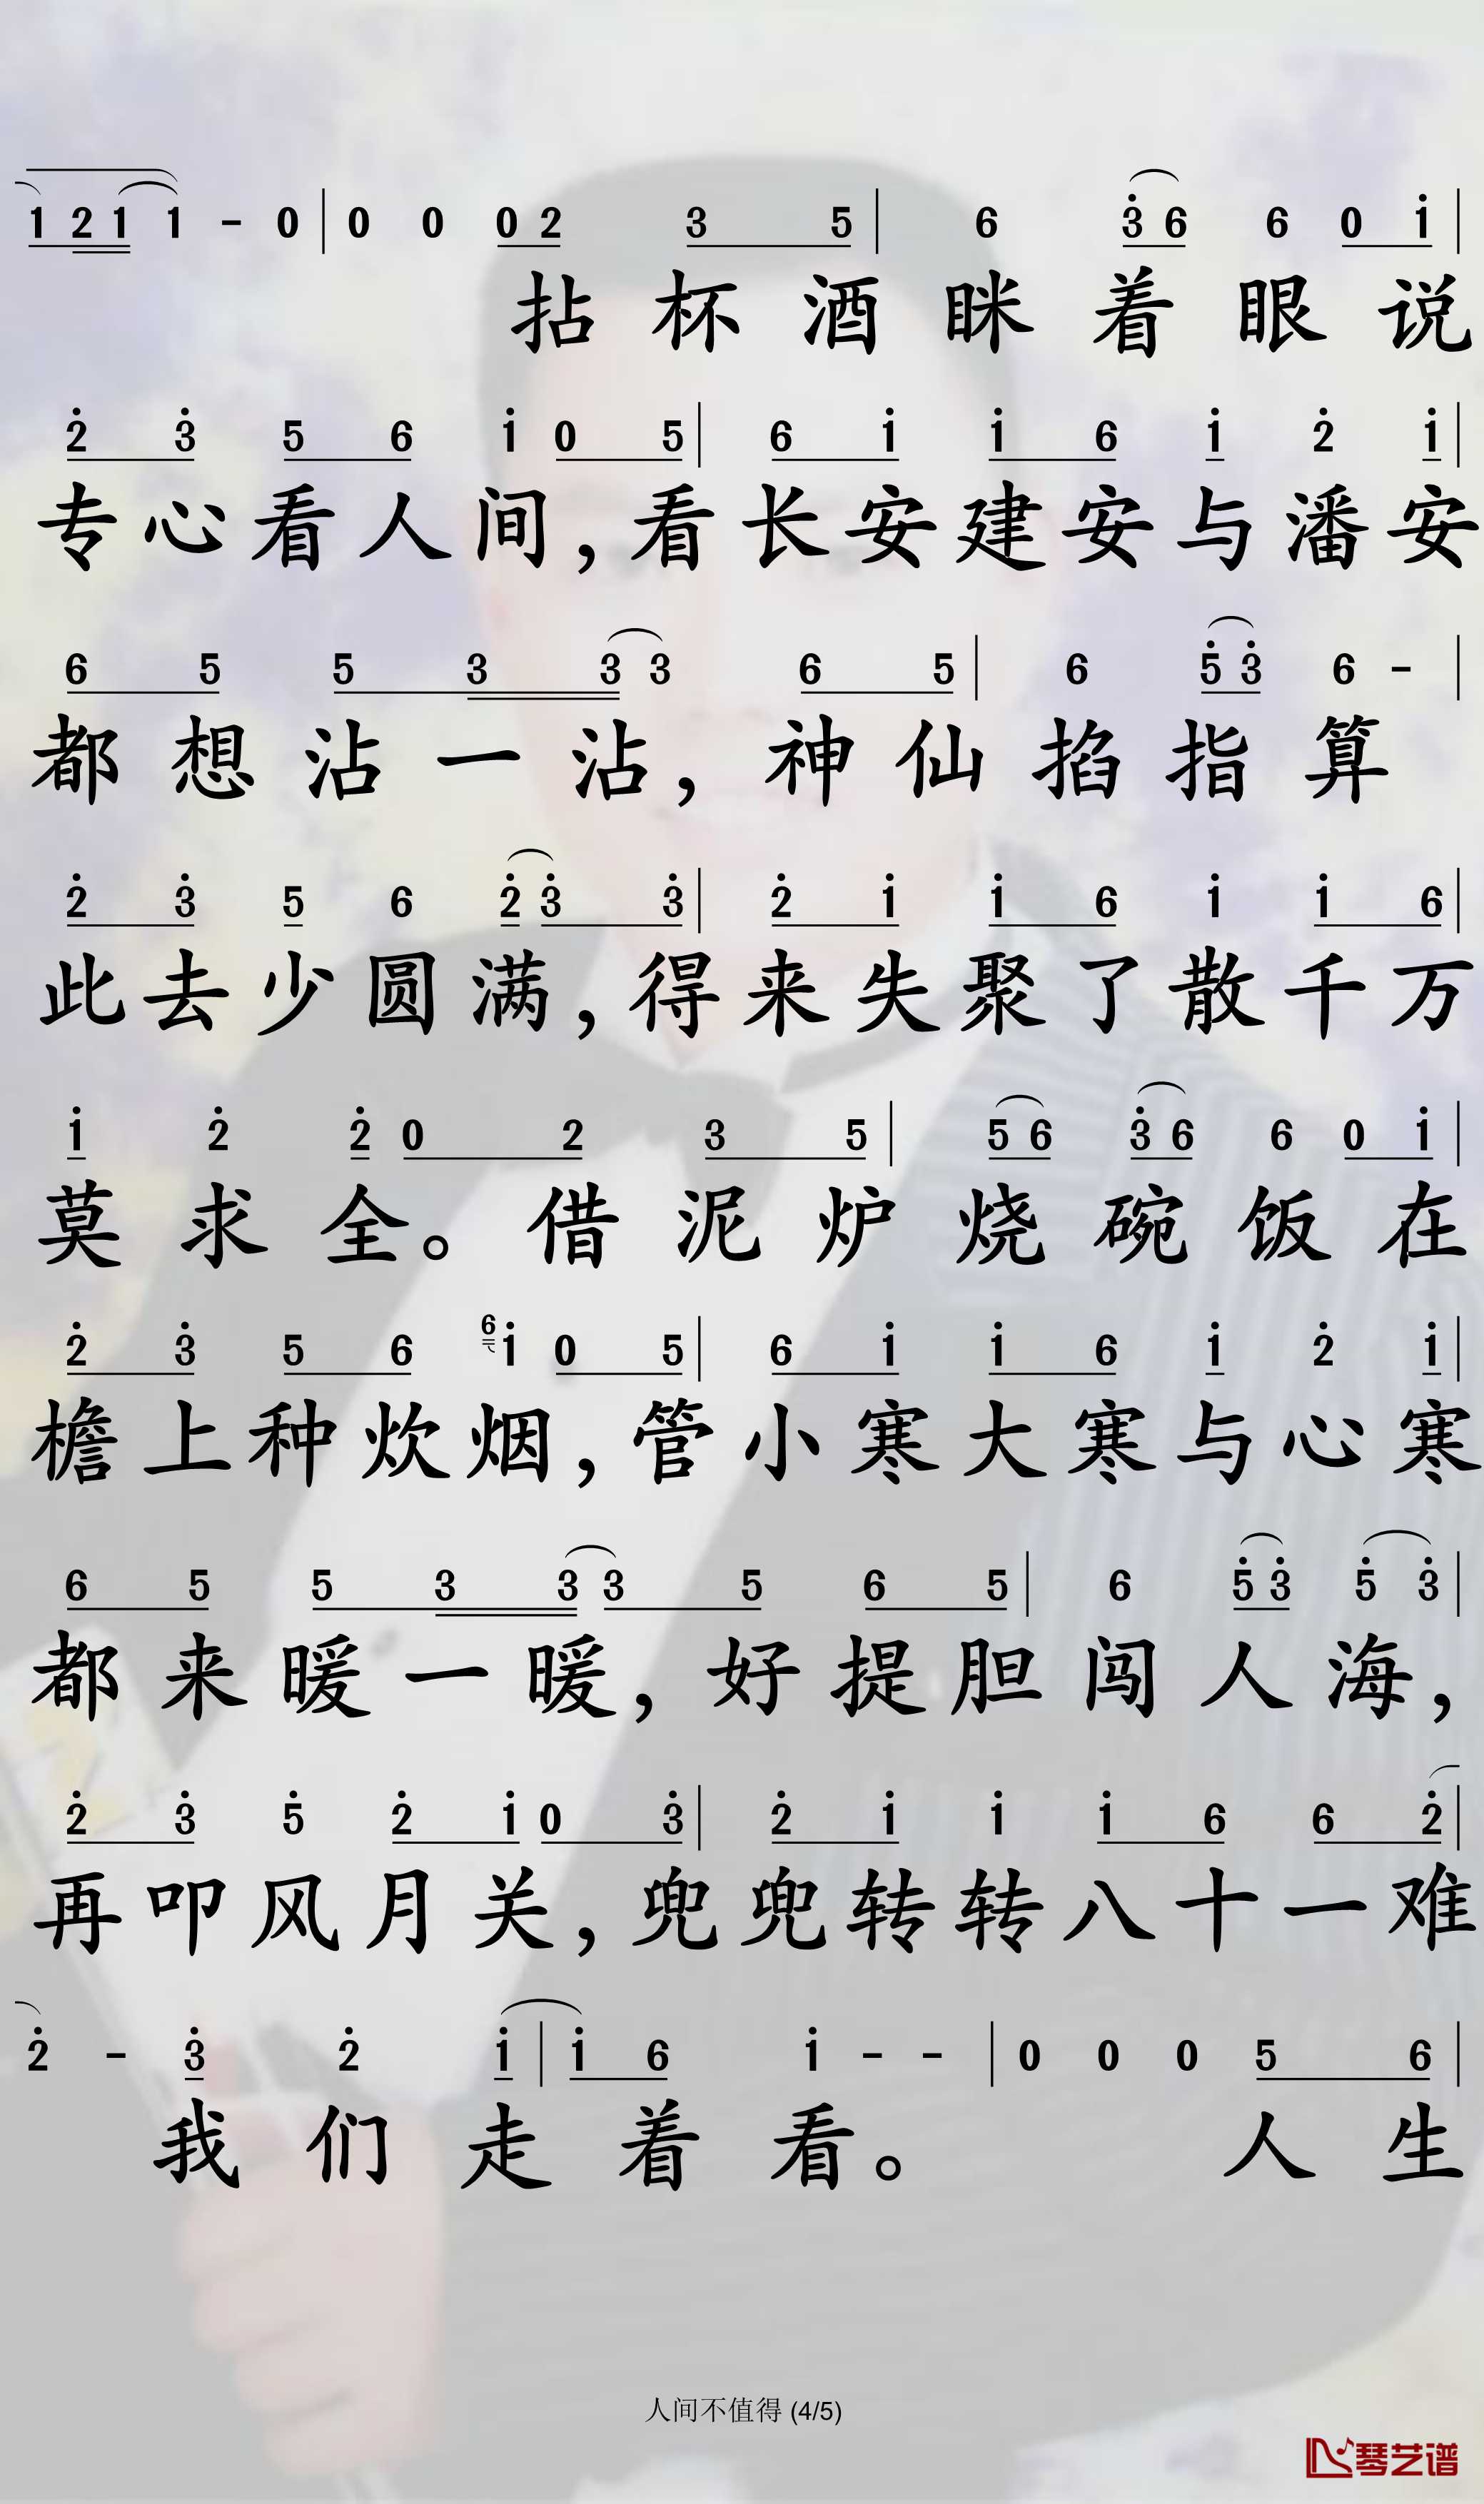 1 2 1 1 - 0 | 0 0 0 2 3 5 | 6 3̇ 6 6 0 1̇ |
拈杯酒眯着眼说
2̇ 3̇ 5 6 1̇ 0 5 | 6 1̇ 1̇ 6 1̇ 2̇ 1̇ |
专心看人间,看长安建安与潘安
6 5 5 3 3 3 6 5 | 6 5̇ 3̇ 6 - |
都想沾一沾,神仙掐指算
2̇ 3̇ 5̇ 6 2̇ 3̇ 3̇ | 2̇ 1̇ 1̇ 6 1̇ 1̇ 6 |
此去少圆满,得来失聚了散千万
1̇ 2̇ 2̇ 0 2 3 5 | 5 6 3̇ 6 6 0 1̇ |
莫求全。借泥炉烧碗饭在
2̇ 3̇ 5 6 6 1̇ 0 5 | 6 1̇ 1̇ 6 1̇ 2̇ 1̇ |
檐上种炊烟,管小寒大寒与心寒
6 5 5 3 3 3 5 6 5 | 6 5̇ 3̇ 5̇ 3̇ |
都来暖一暖,好提胆闯人海,
2̇ 3̇ 5̇ 2̇ 1̇ 0 3̇ | 2̇ 1̇ 1̇ 1̇ 6 6 2̇ |
再叩风月关,兜兜转转八十一难
2̇ - 3̇ 2̇ 1̇ | 1̇ 6 1̇ - - | 0 0 0 5 6 |
我们走着看。人生
人间不值得 (4/5)
琴艺谱